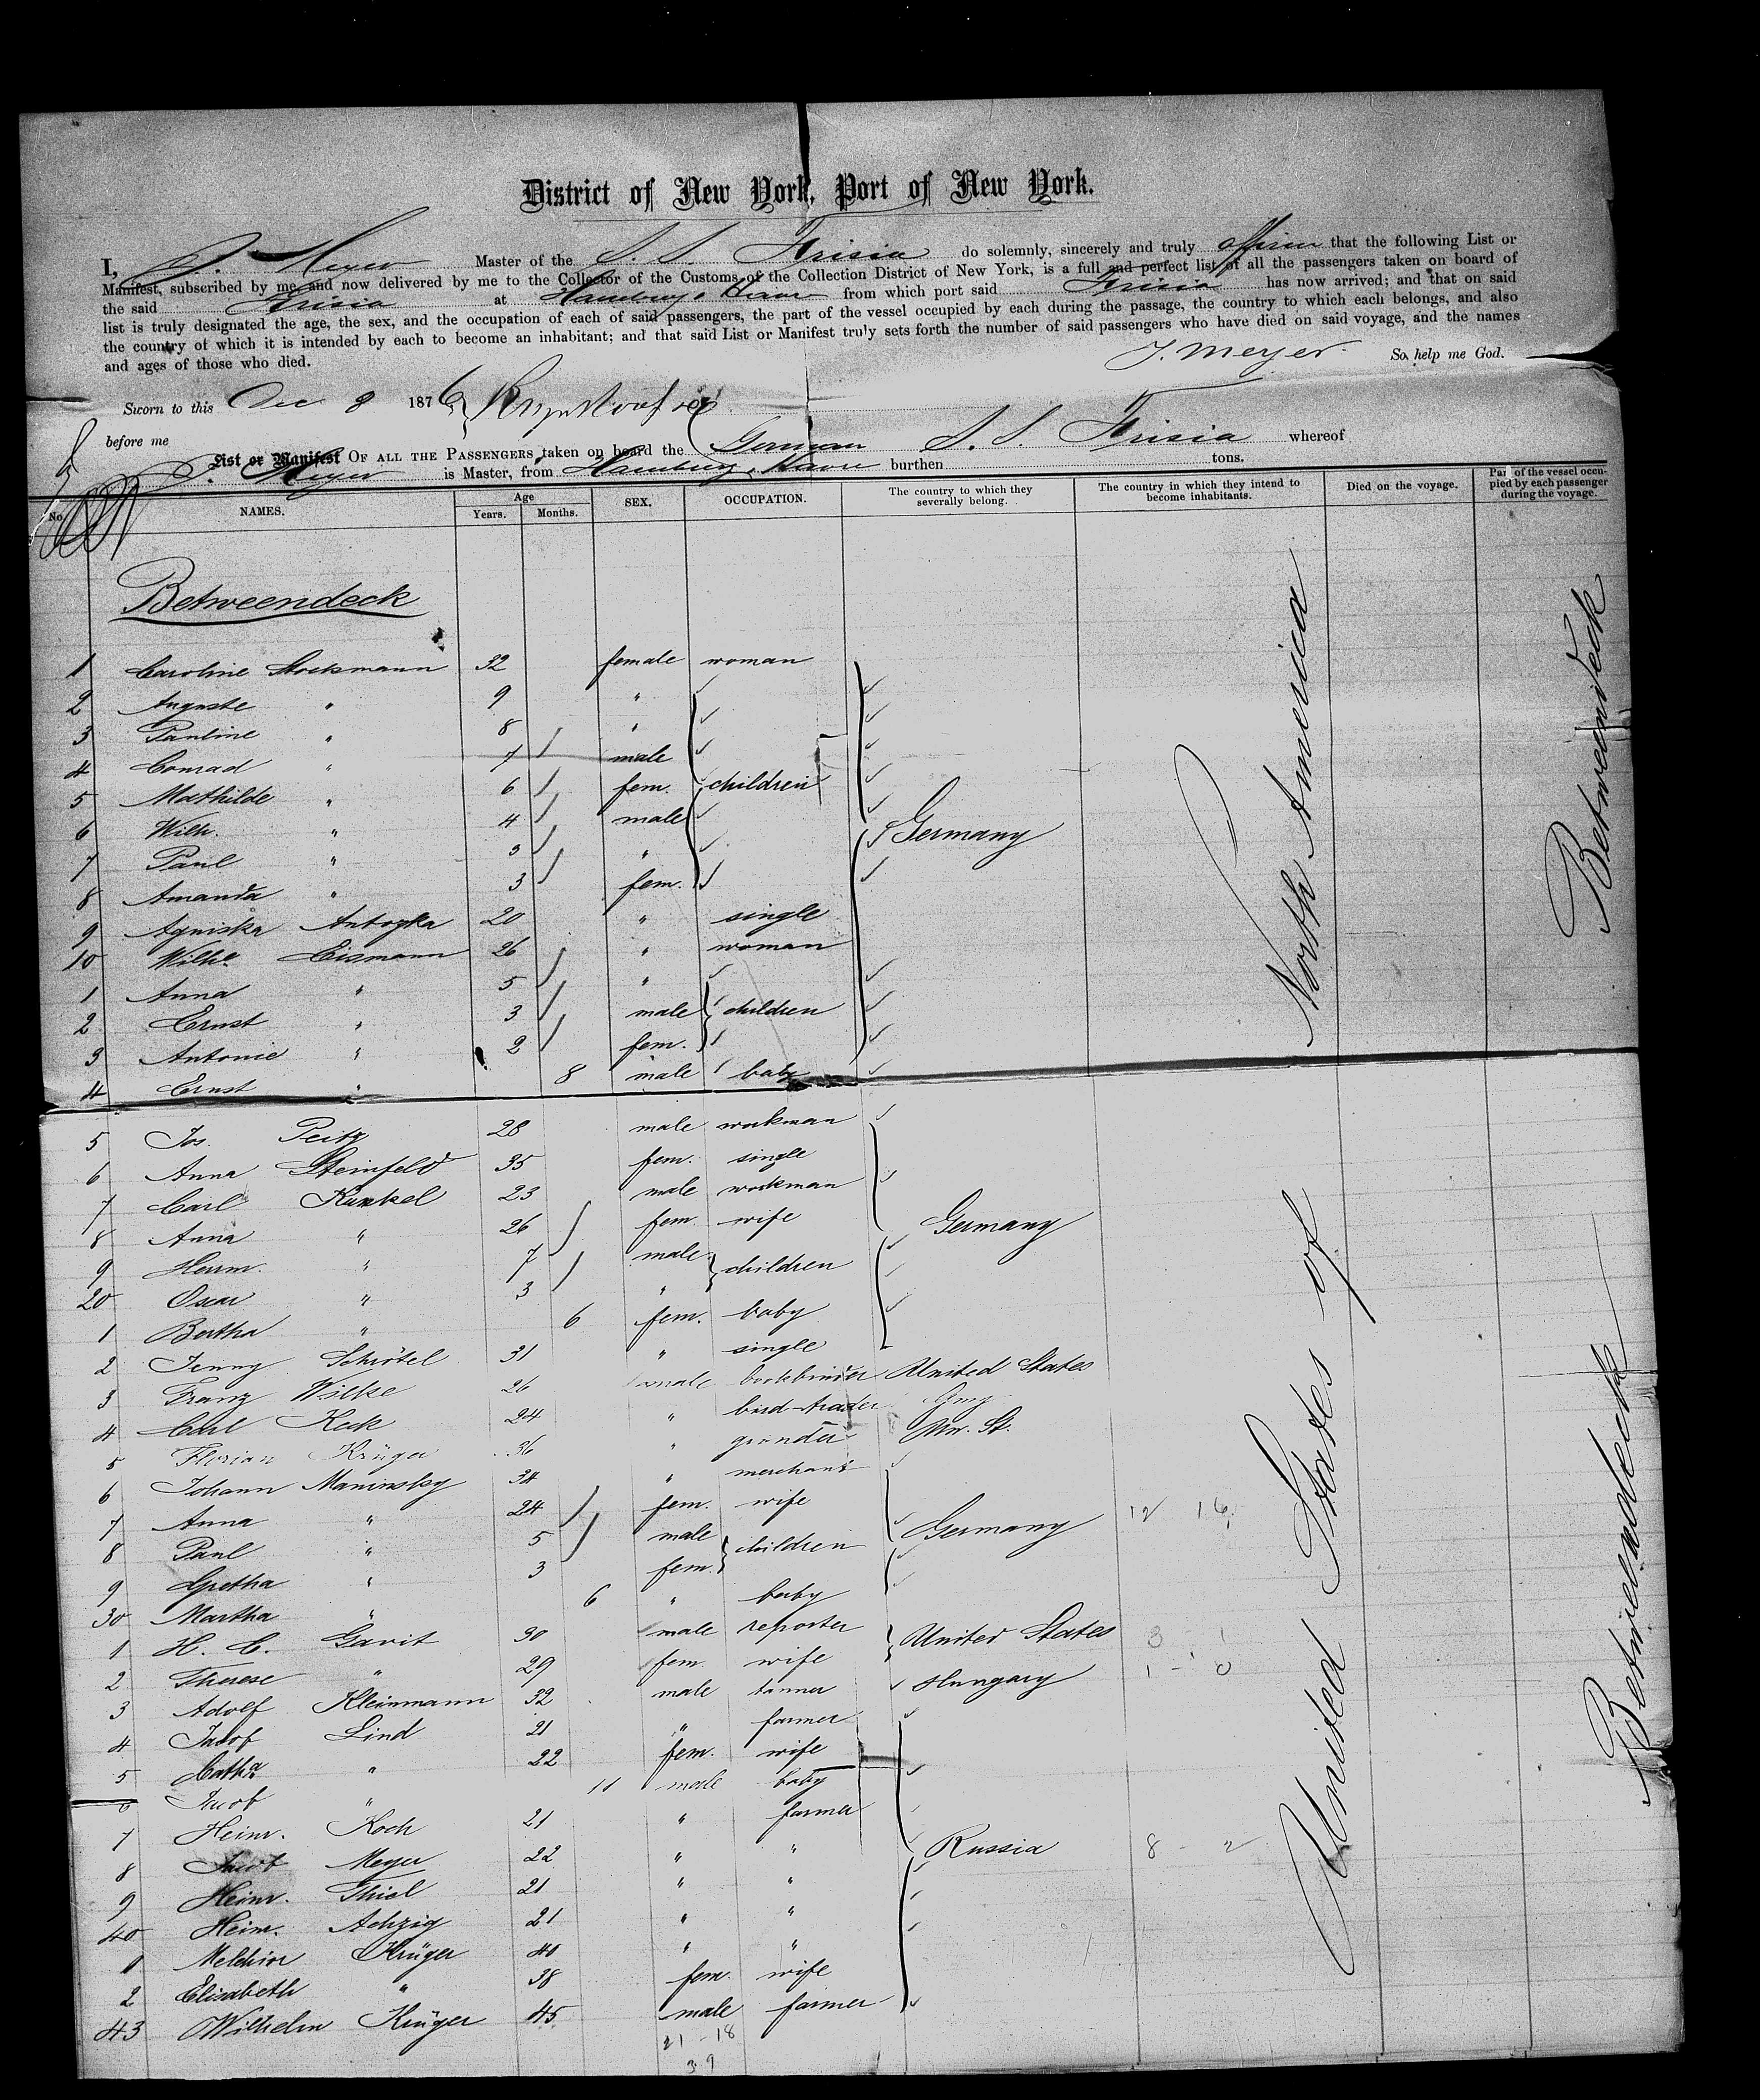 District of New York, Port of New York.
I, J. Meyer Master of the S. S. Frisia do solemnly, sincerely and truly affirm that the following List or
Manifest, subscribed by me and now delivered by me to the Collector of the Customs of the Collection District of New York, is a full and perfect list of all the passengers taken on board of
the said Frisia at Hamburg & Havre from which port said Frisia has now arrived; and that on said
list is truly designated the age, the sex, and the occupation of each of said passengers, the part of the vessel occupied by each during the passage, the country to which each belongs, and also
the country of which it is intended by each to become an inhabitant; and that said List or Manifest truly sets forth the number of said passengers who have died on said voyage, and the names
and ages of those who died.
J. Meyer. So help me God.
Sworn to this Dec 8 1876
before me
List or Manifest OF ALL THE PASSENGERS taken on board the German S. S. Frisia whereof
J. Meyer is Master, from Hamburg & Havre burthen tons.
No. NAMES. Age Years. Months. SEX. OCCUPATION. The country to which they severally belong. The country in which they intend to become inhabitants. Died on the voyage. Part of the vessel occupied by each passenger during the voyage.
Betweendeck
1 Caroline Stockmann 32 female woman
2 Auguste " 9 "
3 Pauline " 8 "
4 Conrad " 7 male
5 Mathilde " 6 fem. children
6 Wilh. " 4 male
7 Paul " 3 " Germany
8 Amanda " 3 fem.
9 Agniska 20 " single
10 Wilhe Eismann 26 " woman
1 Anna " 5 "
2 Ernst " 3 male children
3 Antonie " 2 fem.
4 Ernst " 8 male baby
5 Jos. Peitz 28 male workman
6 Anna Steinfeld 35 fem. single
7 Carl Kunkel 23 male workman
8 Anna " 26 fem. wife Germany
9 Herrm. " 7 male children
20 Oscar " 3 "
1 Bertha " 6 fem. baby
2 Jenny Schrötel 31 " single
3 Franz Wilke 26 male bookbinder United States
4 Carl Keck 24 " bird-trader Gmy
5 Florian Krüger 36 " grinder Un. St.
6 Johann Maninsky 34 " merchant
7 Anna " 24 fem. wife
8 Paul " 5 male children Germany 12 16
9 Gretha " 3 fem.
30 Martha " 6 " baby
1 H. C. Gavit 30 male reporter United States 3 1
2 Therese " 29 fem. wife
3 Adolf Kleinmann 32 male tanner Hungary 1 - 0
4 Jacob Lind 21 " farmer
5 Catha " 22 fem. wife
6 Jacob " 11 male baby
7 Heinr. Koch 21 " farmer
8 Jacob Meyer 22 " " Russia 8 - 2
9 Heinr. Thiel 21 " "
40 Heinr. Achzig 21 " "
1 Melchior Krüger 40 " "
2 Elisabeth " 38 fem. wife
43 Wilhelm Krüger 45 male farmer
21 - 18
39
United States of North America
Betweendeck
Betweendeck